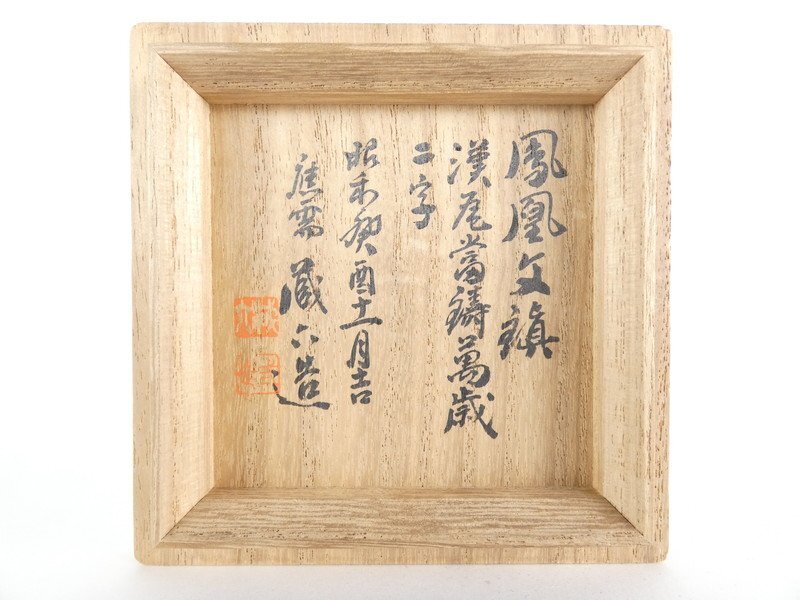 鳳凰文鎮
漢瓦當鑄萬歳
二字
昭和癸酉十一月吉
應需 蔵六造